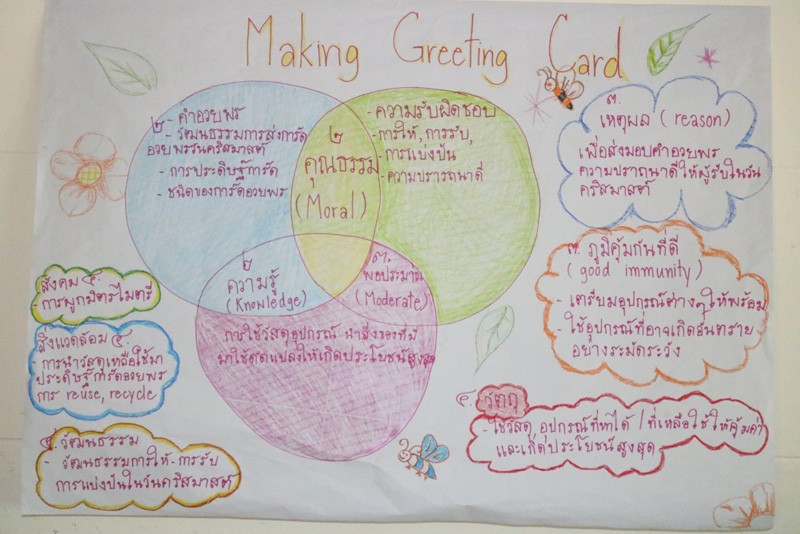 Making Greeting Card
๒ - คำอวยพร
- วัฒนธรรมการส่งการ์ด
อวยพรวันคริสมาสต์
- การประดิษฐ์การ์ด
- ชนิดของการ์ดอวยพร
๒
คุณธรรม
(Moral)
- ความรับผิดชอบ
- การให้, การรับ,
การแบ่งปัน
- ความปรารถนาดี
๒
ความรู้
(Knowledge)
๓.
พอประมาณ
(Moderate)
การใช้วัสดุอุปกรณ์ นำสิ่งของที่มี
มาใช้ดัดแปลงให้เกิดประโยชน์สูงสุด
๓.
เหตุผล (reason)
เพื่อส่งมอบคำอวยพร
ความปราถนาดีให้ผู้รับในวัน
คริสมาสต์
๓. ภูมิคุ้มกันที่ดี
(good immunity)
- เตรียมอุปกรณ์ต่างๆให้พร้อม
- ใช้อุปกรณ์ที่อาจเกิดอันตราย
อย่างระมัดระวัง
๔. วัตถุ
- ใช้วัสดุ อุปกรณ์ที่หาได้ / ที่เหลือใช้ ให้คุ้มค่า
และเกิดประโยชน์สูงสุด
สังคม ๔.
การผูกมิตรไมตรี
สิ่งแวดล้อม ๔.
- การนำวัสดุเหลือใช้มา
ประดิษฐ์การ์ดอวยพร
การ reuse, recycle
๔. วัฒนธรรม
- วัฒนธรรมการให้-การรับ
การแบ่งปันในวันคริสมาสต์